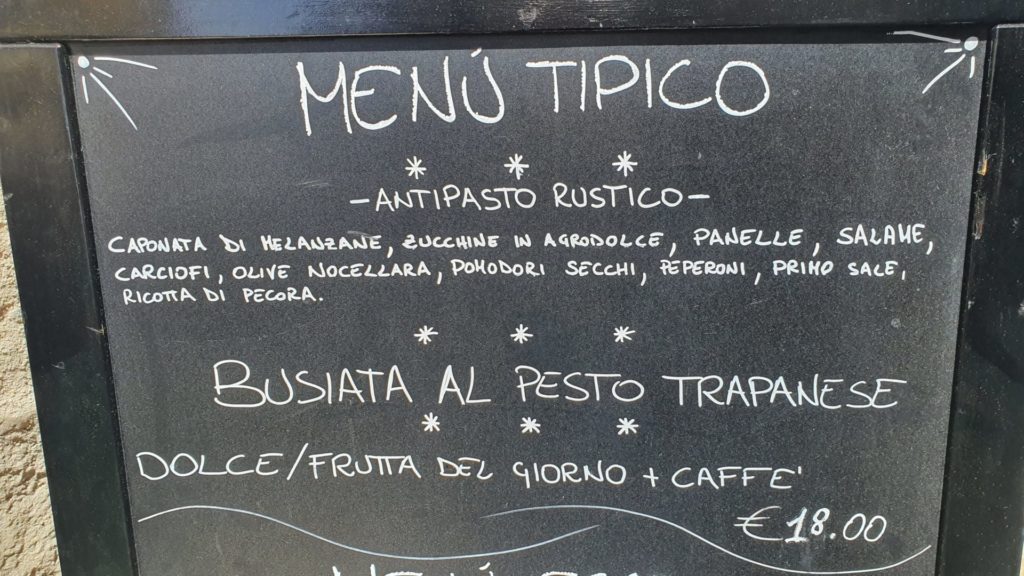 MENÚ TIPICO
* * *
- ANTIPASTO RUSTICO -
CAPONATA DI MELANZANE, ZUCCHINE IN AGRODOLCE, PANELLE, SALAME,
CARCIOFI, OLIVE NOCELLARA, POMODORI SECCHI, PEPERONI, PRIMO SALE,
RICOTTA DI PECORA.
* * *
BUSIATA AL PESTO TRAPANESE
* * *
DOLCE/FRUTTA DEL GIORNO + CAFFE'
€ 18.00
MENÚ